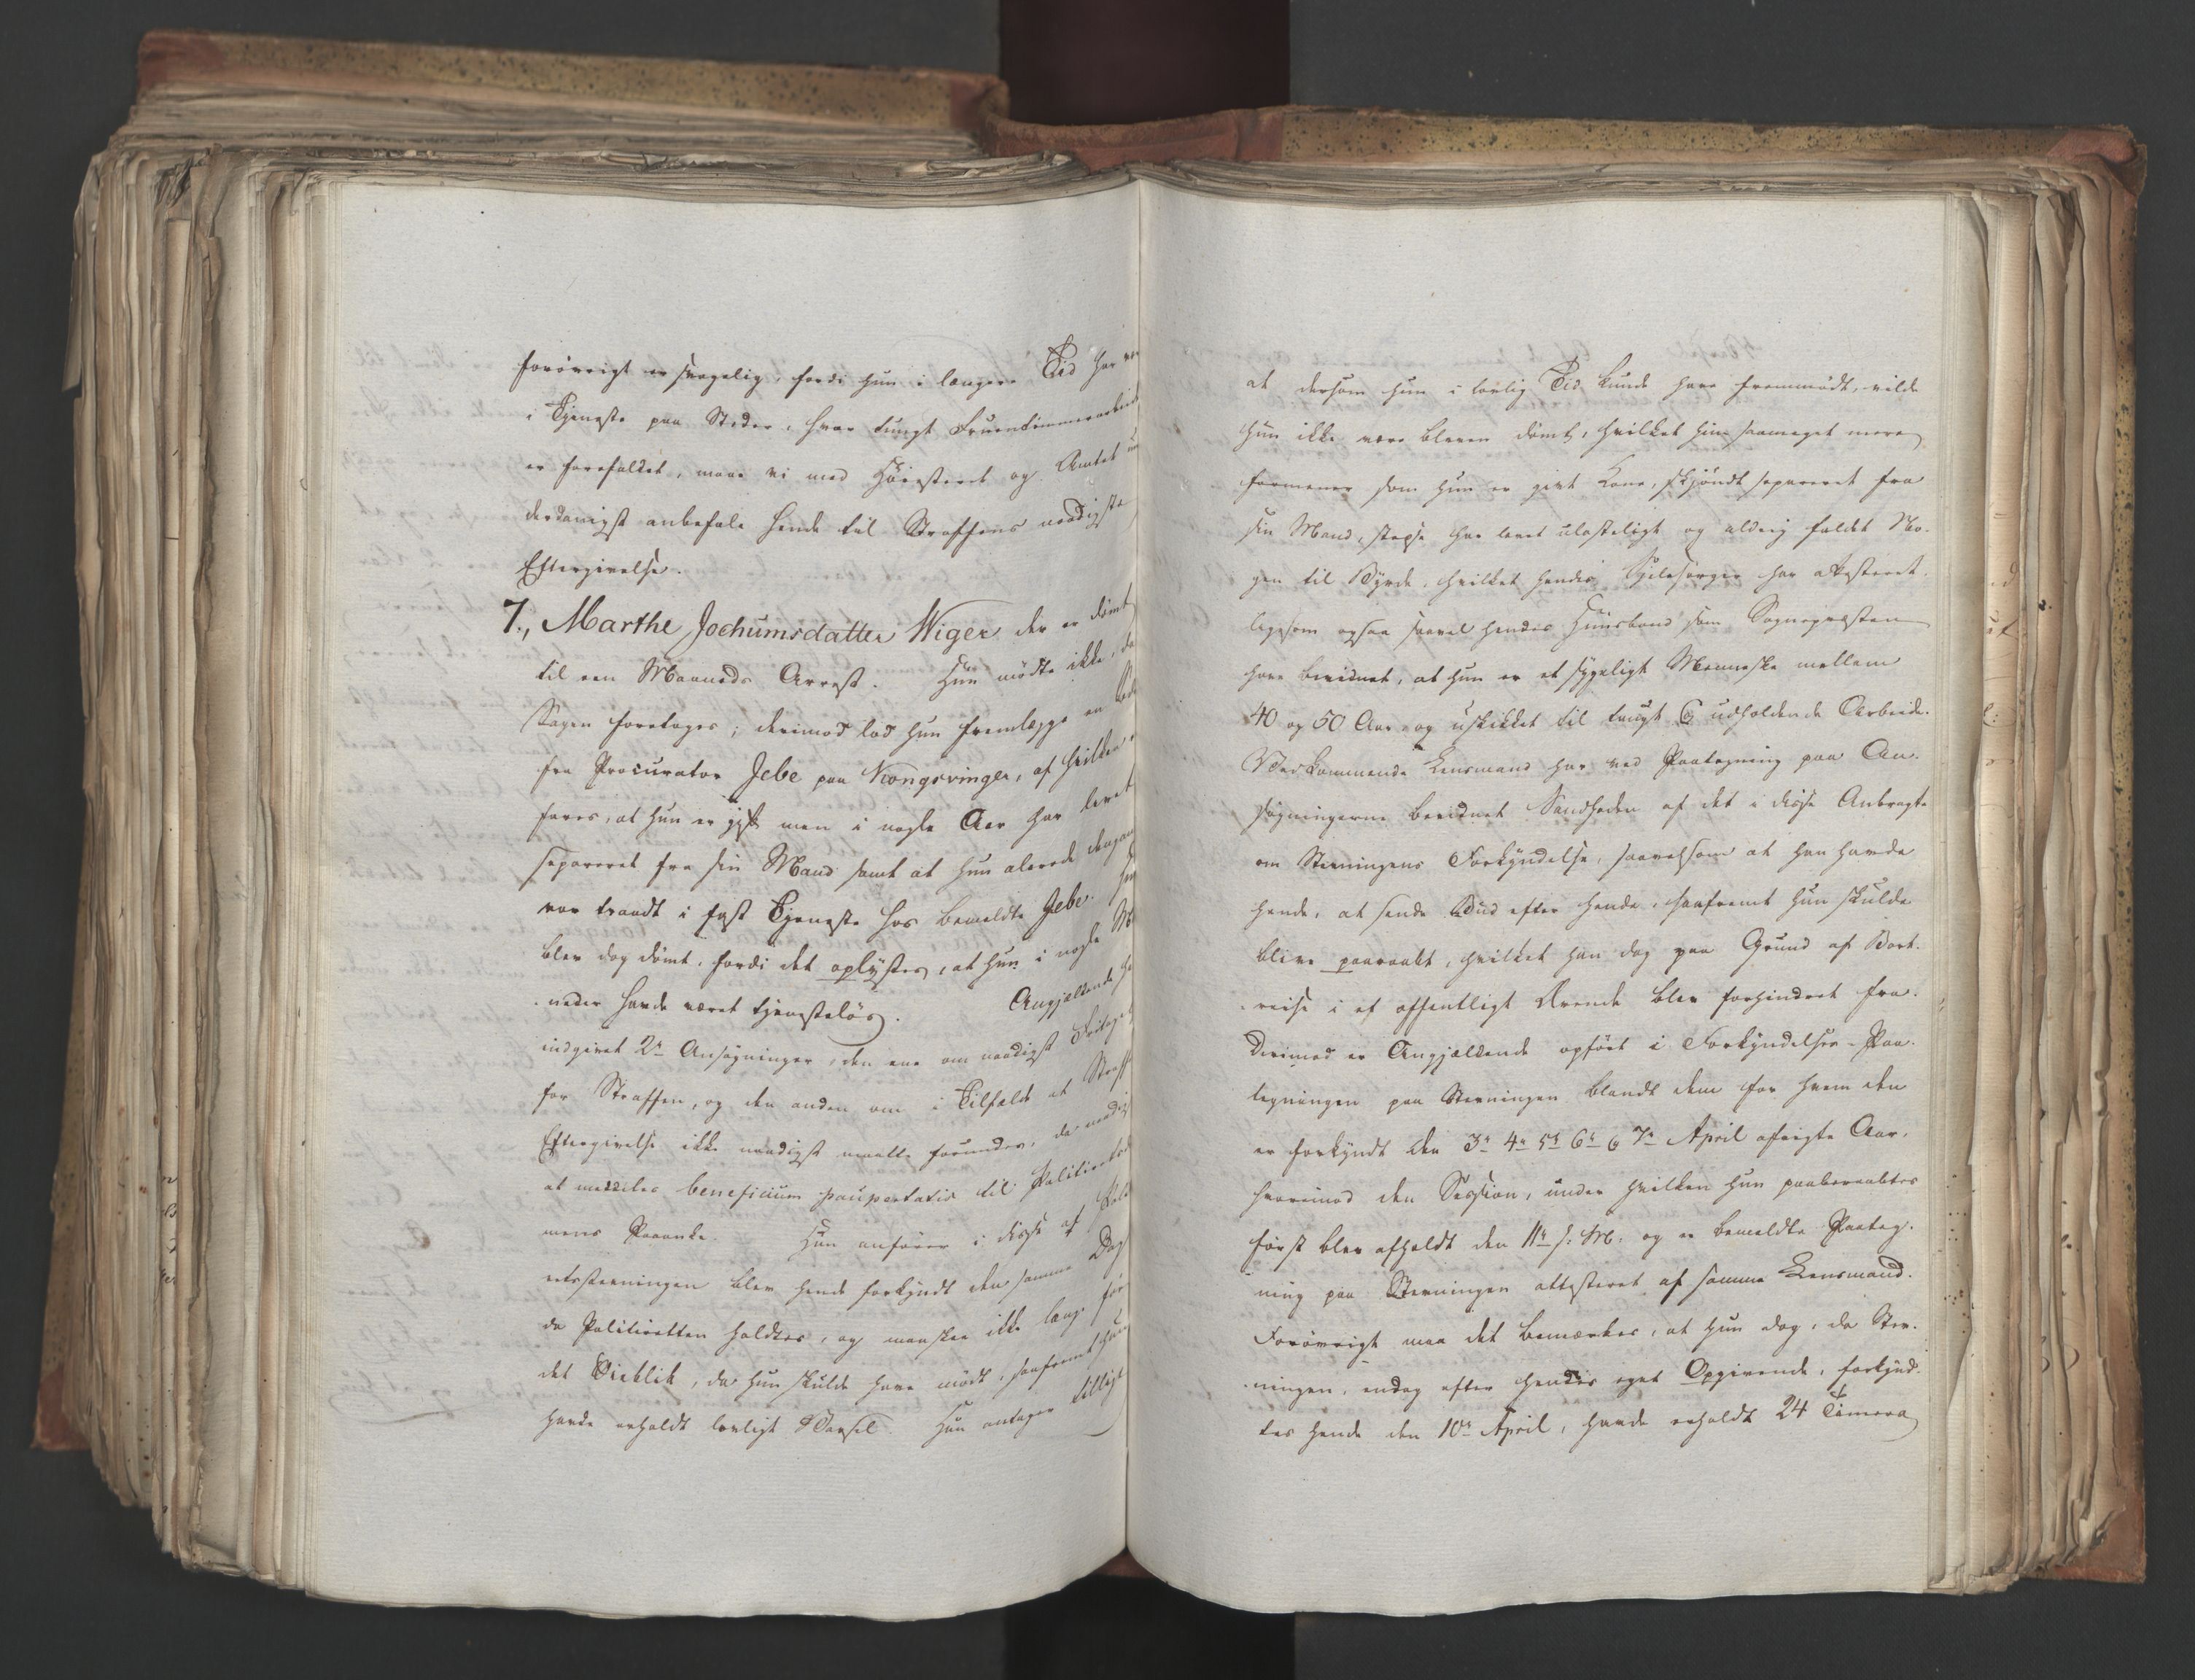 forøvrigt er svagelig, fordi hun i længere Tid har
i Tjeneste paa Steder, hvor tungt Fruentimmerarbeid
er forefaldet, maae vi med Høiesteret og Amtet un
derdanigst anbefale hende til Straffens naadigste
Eftergivelse.
7., Marthe Jochumsdatter Wiger der er dømt
til een Maaneds Arrest. Hun mødte ikke, da
Sagen foretoges; derimod lod hun fremlægge en
fra Procurator Jebe paa Kongsvinger, af hvilken
føres, at hun er gift men i nogle Aar har levet
separeret fra sin Mand samt at hun allerede dengang
var traadt i fast Tjeneste hos bemeldte Jebe. Hun
blev dog dømt, fordi det oplystes, at hun i nogle Ma
neder havde været tjenesteløs. Angjældende ha
indgivet 2de Ansøgninger, den ene om naadigst Fritagel
for Straffen, og den anden om i Tilfælde at Straff
Eftergivelse ikke naadigst maatte forundes, da naadigst
at meddeles beneficium paupertatis til Politiretsdom
mens Paaanke. Hun anfører i disse at Poli
retsstevningen blev hende forkyndt den samme Dag
da Politiretten holdtes, og maaskee ikke længe før
det Øieblik, da hun skulde have mødt, saafremt hun
havde erholdt lovligt Varsel. Hun antager tilligt
at dersom hun i lovlig Tid kunde have fremmødt, vilde
hun ikke være bleven dømt, hvilket hun saameget mere
formener som hun er givt Kone, skjøndt separeret fra
sin Mand, stedse har levet ulasteligt og aldrig faldet No-
gen til Byrde, hvilket hendes Sjelesørger har attesteret.
ligesom ogsaa saavel hendes Huusbond som Sognepræsten
have bevidnet, at hun er et sygeligt Menneske mellem
40 og 50 Aar og uskikket til tungt & udholdende Arbeide.
Vedkommende Lensmand har ved Paategning paa An-
søgningerne bevidnet Sandheden af det i disse Anbragte
om Stevningens Forkyndelse, saavelsom at han havde
hende, at sende Bud efter hende, saafremt hun skulde
blive paaraabt, hvilket han dog paa Grund af Bort-
reise i et offentligt Ærende blev forhindret fra.
Derimod er Angjældende opført i Forkyndelses-Paa-
tegningen paa Stevningen blandt dem for hvem den
er forkyndt den 3de 4de 5te 6te & 7de April afvigte Aar,
hvorimod den Session, under hvilken hun paaberaabtes
først blev afholdt den 11te s: M: og er bemeldte Paateg-
ning paa Stevningen attesteret af samme Lensmand.
Forøvrigt maa det bemærkes, at hun dog, da Stev-
ningen, endog efter hendes eget Opgivende, forkynd-
tes hende den 10de April, havde erholdt 24 Timers